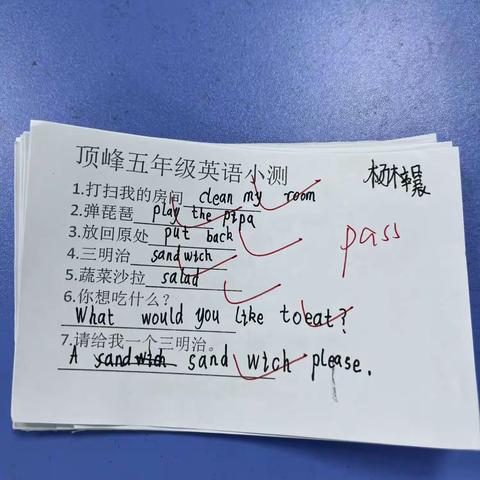 顶峰五年级英语小测
1.打扫我的房间 clean my room
2.弹琵琶 play the pipa
3.放回原处 put back
4.三明治 sandwich
5.蔬菜沙拉 salad
6.你想吃什么?
What would you like to eat?
7.请给我一个三明治。
A sandwich sand wich please.
pass